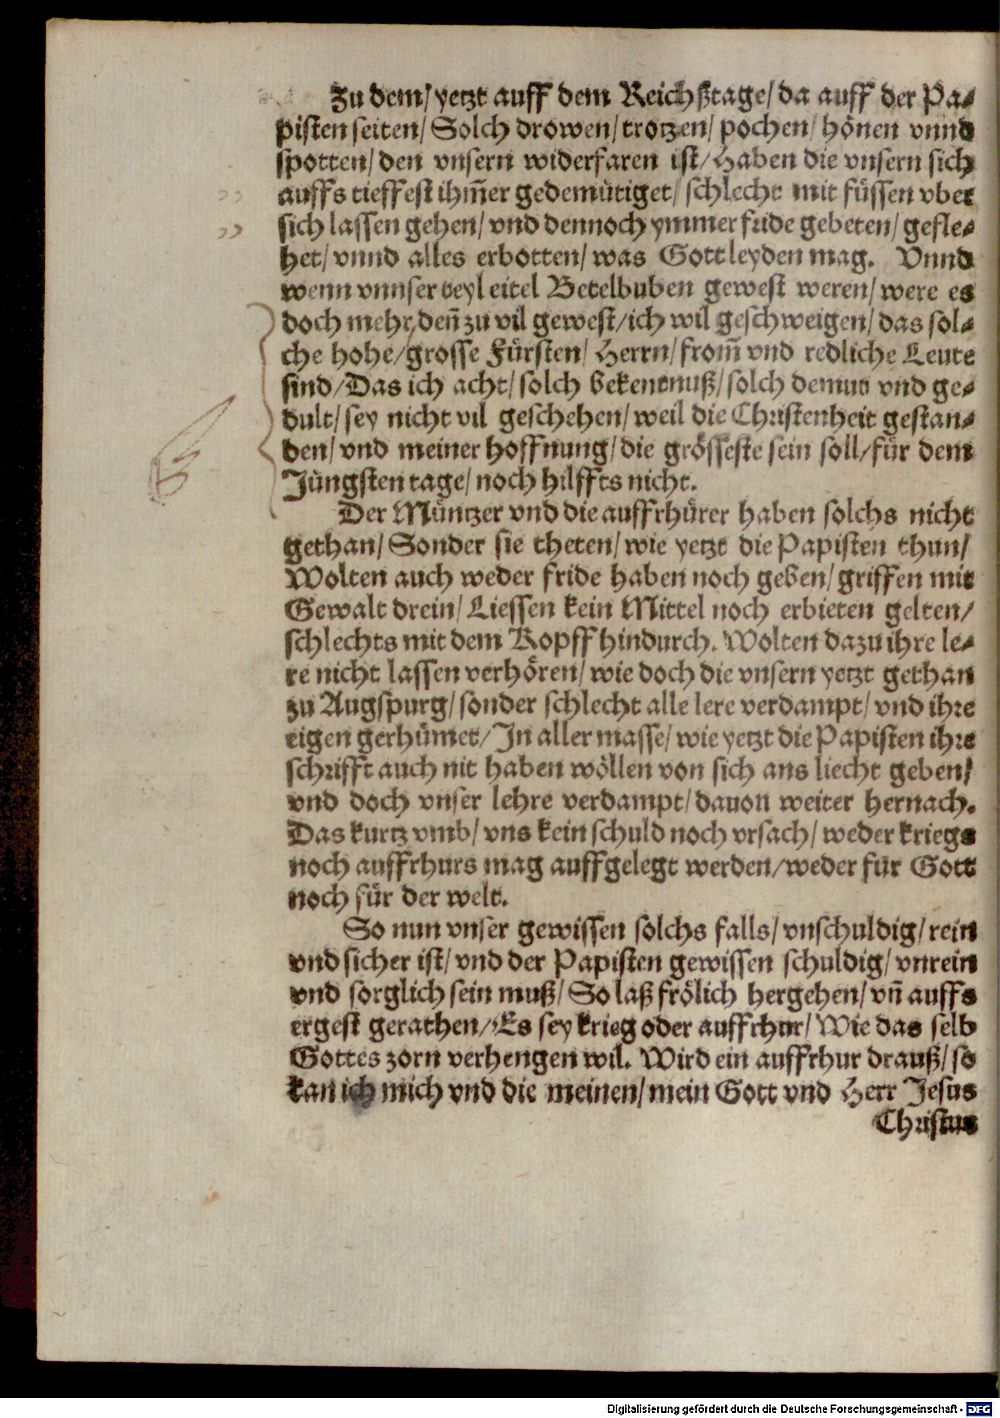 Zu dem/ yetzt auff dem Reichßtage/ da auff der Pa-
pisten seiten/ Solch drowen/ trotzen/ pochen/ hönen vnnd
spotten/ den vnsern widerfaren ist/ Haben die vnsern sich
auffs tieffest ihm̃er gedemütiget/ schlecht mit füssen vber
sich lassen gehen/ vnd dennoch ymmer fride gebeten/ gefle-
het/ vnnd alles erbotten/ was Gott leyden mag. Vnnd
wenn vnnser teyl eitel Betelbuben gewest weren/ were es
doch mehr, deñ zu vil gewest/ ich wil geschweigen/ das sol-
che hohe/ grosse Fürsten/ Herrn/ from̃ vnd redliche Leute
sind/ Das ich acht/ solch bekentnuß/ solch demut vnd ge-
dult/ sey nicht vil geschehen/ weil die Christenheit gestan-
den/ vnd meiner hoffnung/ die grösseste sein soll/ für dem
Jüngsten tage/ noch hilffts nicht.
Der Müntzer vnd die auffrhürer haben solchs nicht
gethan/ Sonder sie theten/ wie yetzt die Papisten thun/
Wolten auch weder fride haben noch geben/ griffen mit
Gewalt drein/ Liessen kein Mittel noch erbieten gelten/
schlechts mit dem Kopff hindurch. Wolten dazu ihre le-
re nicht lassen verhören/ wie doch die vnsern yetzt gethan
zu Augspurg/ sonder schlecht alle lere verdampt/ vnd ihre
eigen gerhümet/ Jn aller masse/ wie yetzt die Papisten ihre
schrifft auch nit haben wöllen von sich ans liecht geben/
vnd doch vnser lehre verdampt/ dauon weiter hernach.
Das kurtz vmb/ vns kein schuld noch vrsach/ weder kriegs
noch auffrhurs mag auffgelegt werden/ weder für Gott
noch für der welt.
So nun vnser gewissen solchs falls/ vnschuldig/ rein
vnd sicher ist/ vnd der Papisten gewissen schuldig/ vnrein
vnd sorglich sein muß/ So laß frölich hergehen/ vñ auffs
ergest gerathen/ Es sey krieg oder auffrhur/ Wie das selb
Gottes zorn verhengen wil. Wird ein auffrhur drauß/ so
kan ich mich vnd die meinen/ mein Gott vnd Herr Jesus
Christus
Digitalisierung gefördert durch die Deutsche Forschungsgemeinschaft - DFG